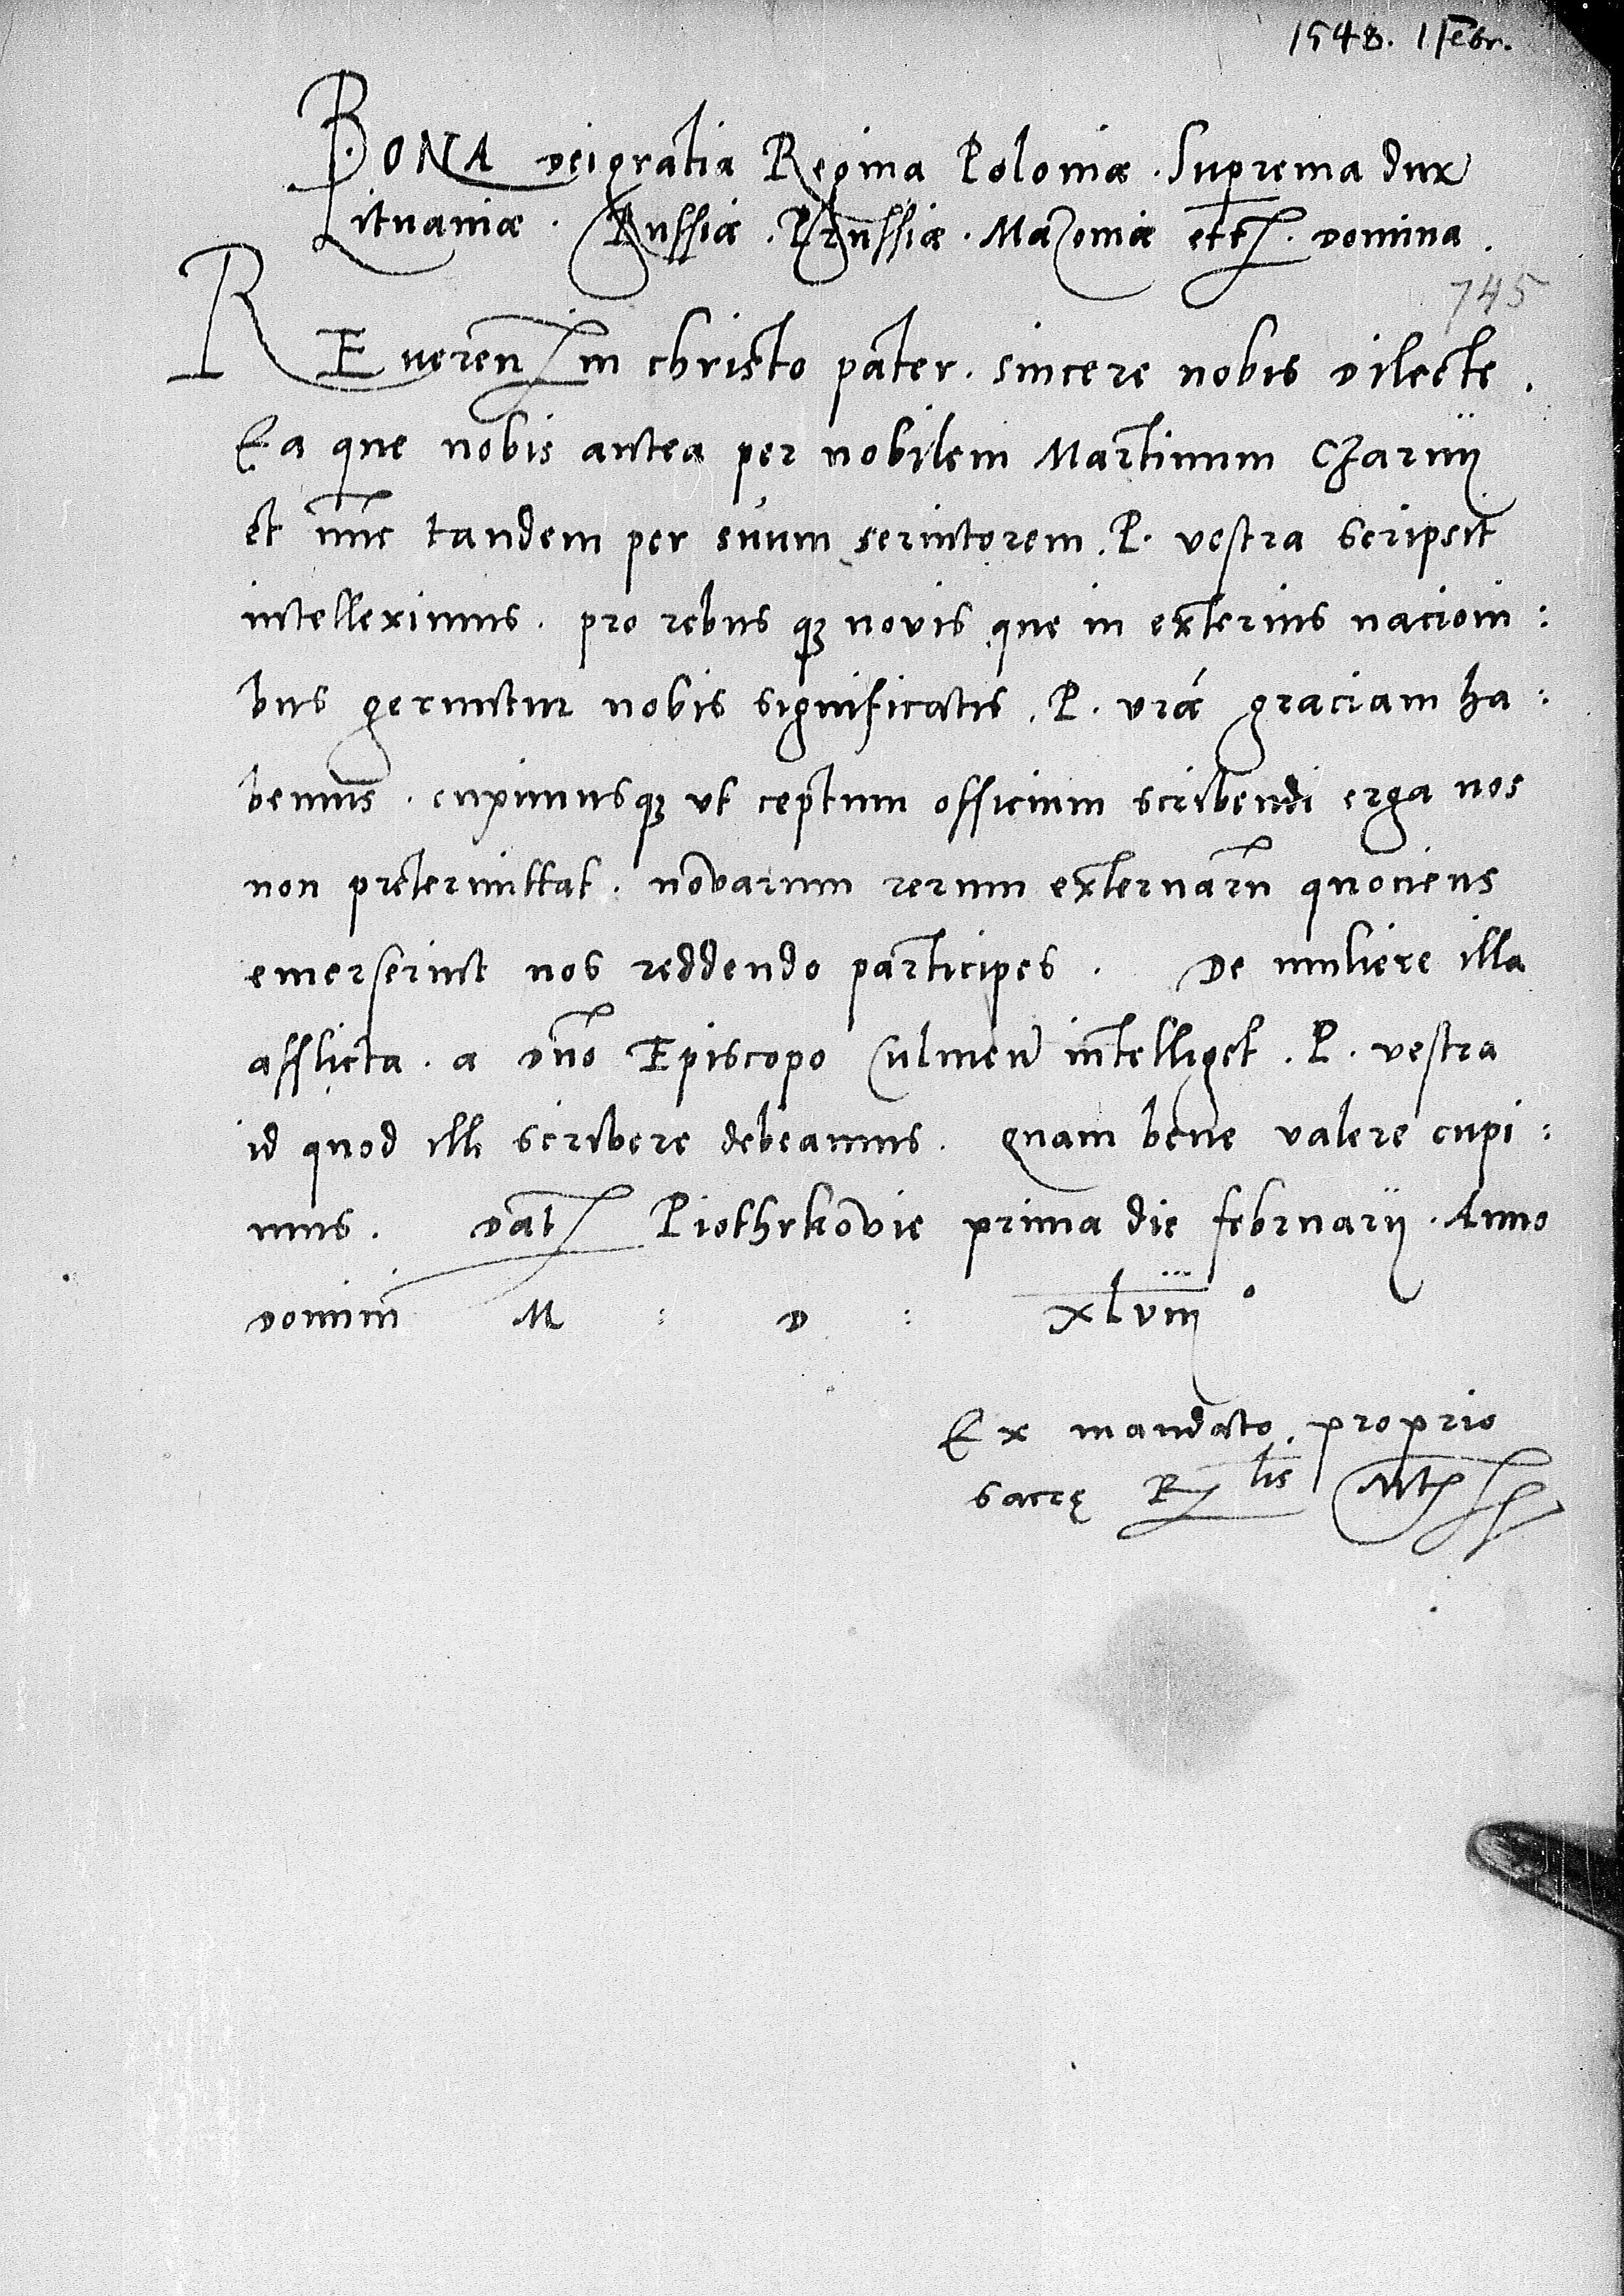 1548. 1 Febr.
BONA dei gratia Regina Poloniæ. Suprema dux
Lituaniæ. Russiæ. Prussiæ. Mazoniæ etc. domina.
745
REueren in christo pater. sincere nobis dilecte.
Ea que nobis antea per nobilem Martinum Czarnij
et nūc tandem per suum seruitorem. P. vestra scripsit
intelleximus. pro rebus q3 novis que in exterius nacioni:
bus geruntur nobis significatis. P. vrã graciam ha:
bemus. cupimusq3 vt ceptum officium scribendi erga nos
non pretermittat. novarum rerum externarū quouis
emerserint nos reddendo participes. De muliere illa
afflicta. a dño Episcopo Culmeñ intelliget. P. vestra
id quod illi scribere debeamus. quam bene valere cupi:
mus. Dat Piothrkovie prima die februarij. Anno
domini M : D : xlviii°
Ex mandato proprio
sacrę R lis Mtis